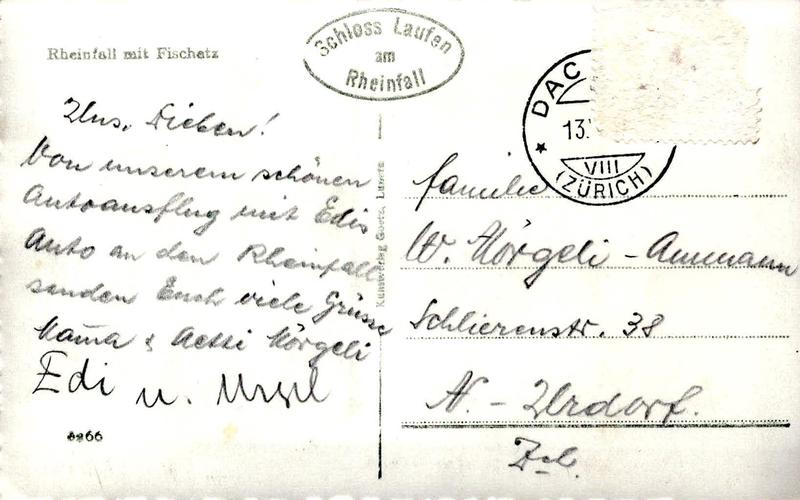 Rheinfall mit Fischetz
Schloss Laufen
am
Rheinfall
Uns. Lieben!
Von unserem schönen
Autoausflug mit Edis
Auto an den Rheinfall
senden Euch viele Grüsse
Mama & Aetti Mörgeli
Edi u.
8266
Kunstverlag Goetz, Luzern
DAC
13.
VIII
(ZÜRICH)
Familie
W. Mörgeli-Ammann
Schlierenstr. 38
N.-Urdorf.
Zch.